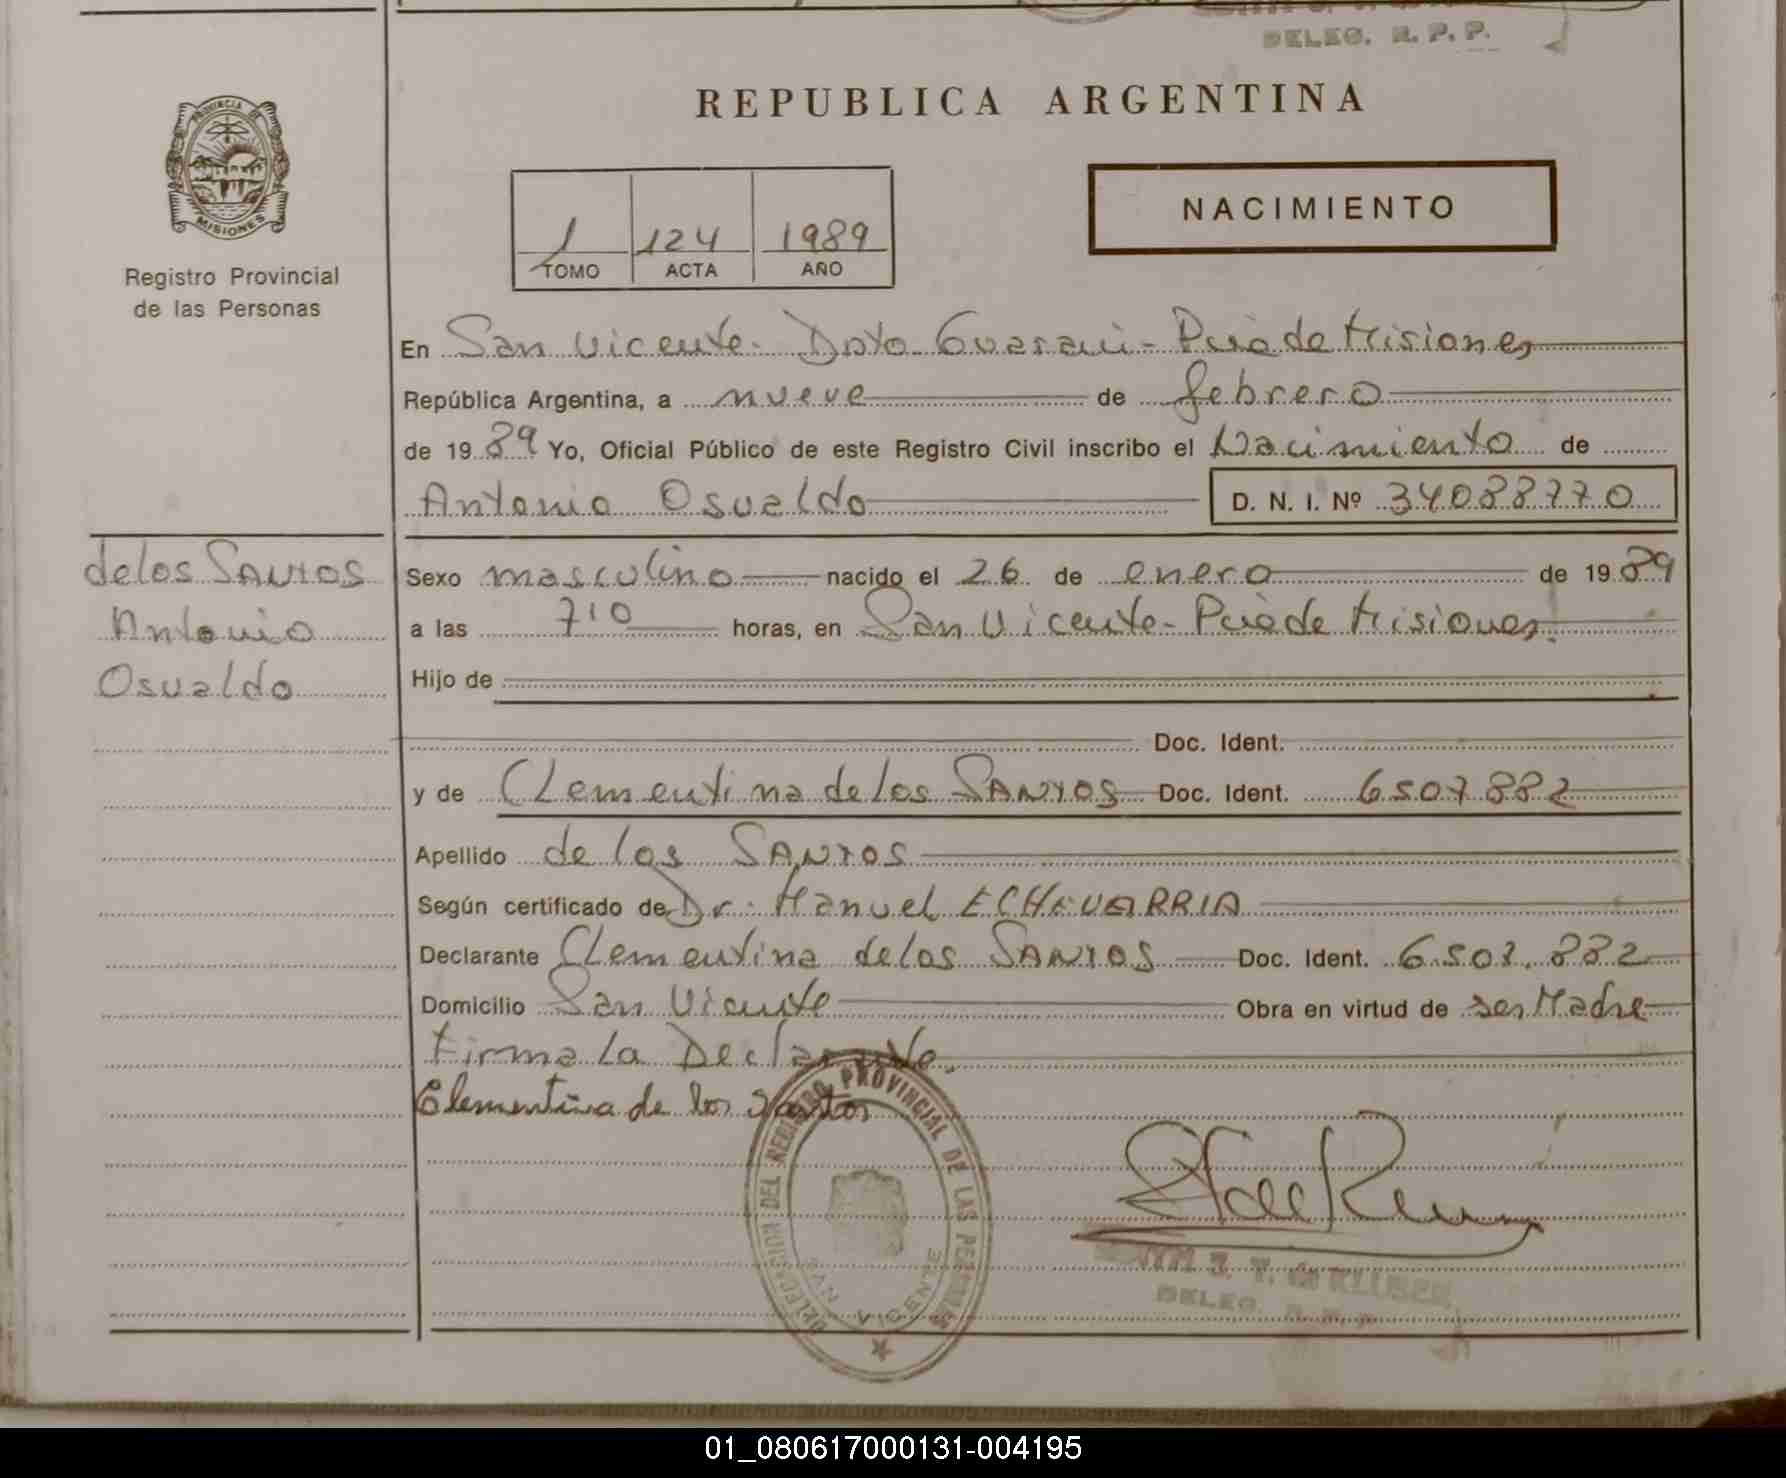 DELEG. R. P. P.
REPUBLICA ARGENTINA
PROVINCIA DE
MISIONES
Registro Provincial
de las Personas
1 124 1989
TOMO ACTA AÑO
NACIMIENTO
En San Vicente - Dpto Guarani - Pcia de Misiones
República Argentina, a nueve de febrero
de 1989 Yo, Oficial Público de este Registro Civil inscribo el Nacimiento de
Antonio Osvaldo D. N. I. Nº 34088770
de los SANTOS
Antonio
Osvaldo
Sexo masculino nacido el 26 de enero de 1989
a las 710 horas, en San Vicente - Pcia de Misiones.
Hijo de
Doc. Ident.
y de CLementina de los SANTOS Doc. Ident. 6507882
Apellido de los SANTOS
Según certificado de Dr. Manuel ECHEVARRIA
Declarante CLementina de los SANTOS Doc. Ident. 6.507.882
Domicilio San Vicente Obra en virtud de ser Madre
Firma La Declarante.
Clementina de los Santos
DELEGACION DEL REGISTRO PROVINCIAL DE LAS PERSONAS
SAN VICENTE
T. de KLUSER
DELEG. R. P. P.
01_080617000131-004195